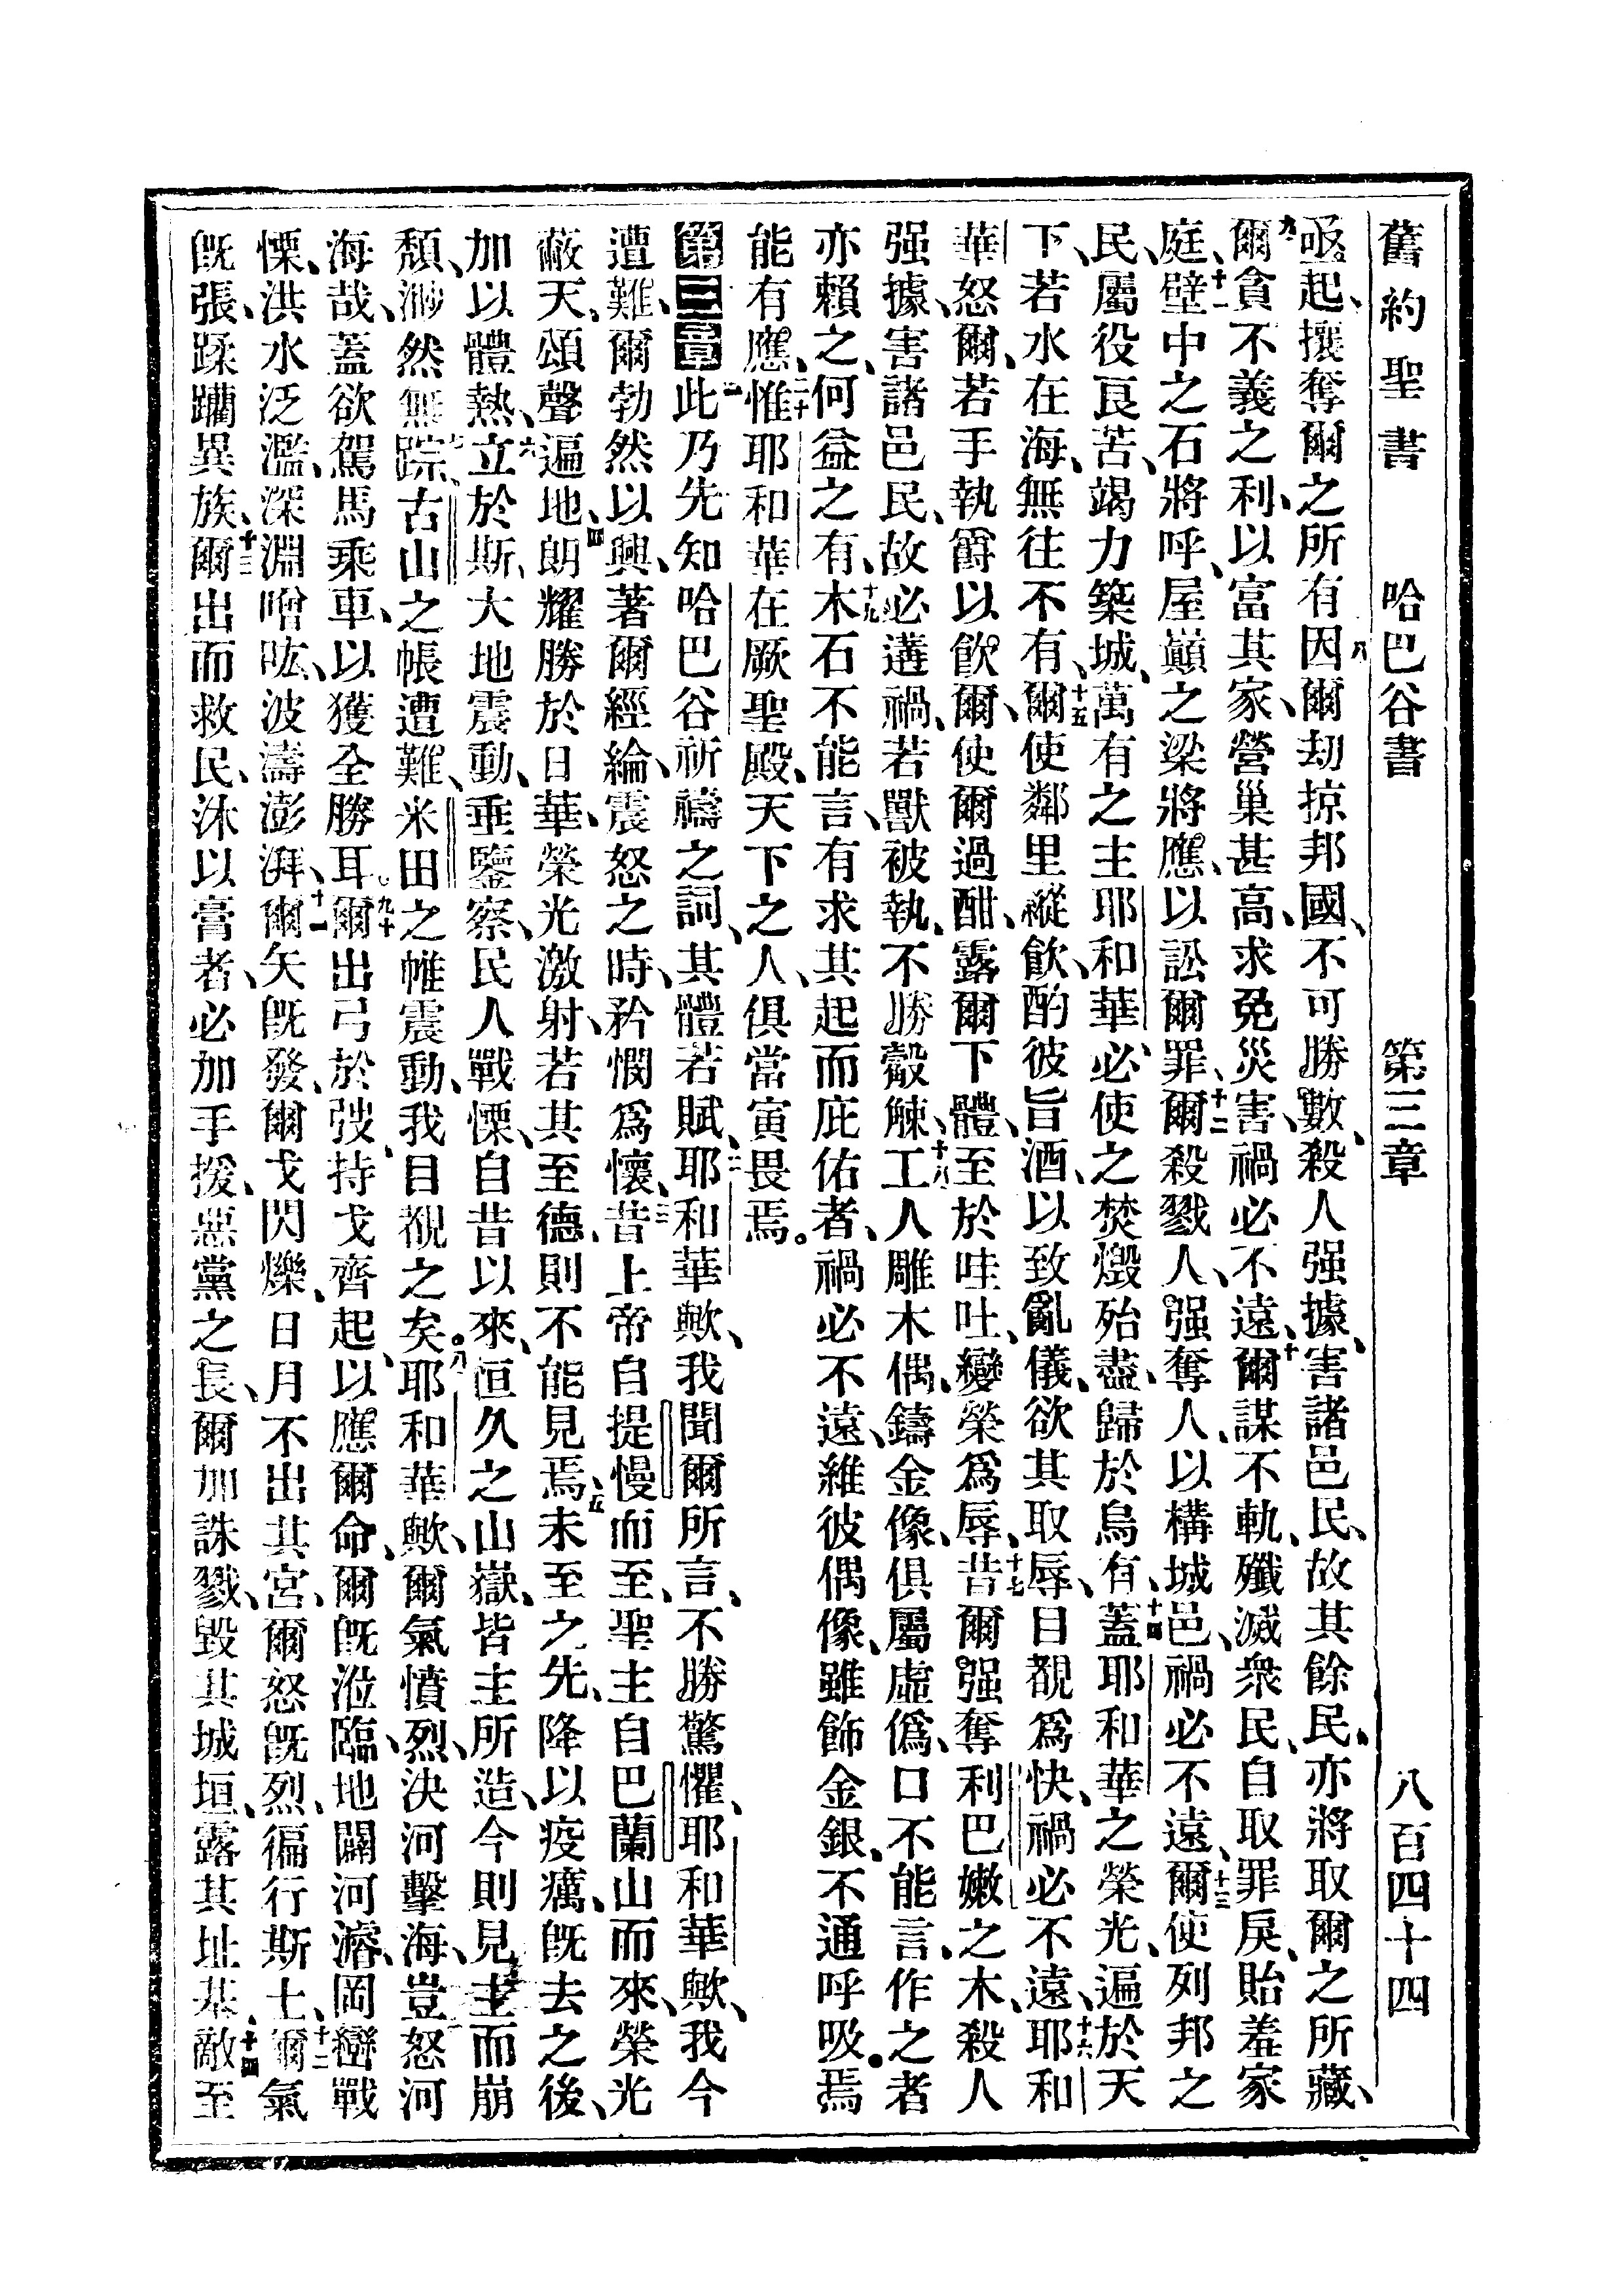 舊約聖書 哈巴谷書 第三章 八百四十四
亟起、攘奪爾之所有、八因爾刧掠邦國、不可勝數、殺人强據、害諸邑民、故其餘民、亦將取爾之所藏、
九爾貪不義之利、以富其家、營巢甚高、求免災害、禍必不遠、十爾謀不軌、殲滅衆民、自取罪戾、貽羞家
庭、十一壁中之石將呼、屋巔之梁將應、以訟爾罪、十二爾殺戮人、强奪人、以構城邑、禍必不遠、十三爾使列邦之
民、屬役良苦、竭力築城、萬有之主耶和華、必使之焚燬殆盡、歸於烏有、十四蓋耶和華之榮光、遍於天
下、若水在海、無往不有、十五爾使鄰里縱飲、酌彼旨酒、以致亂儀、欲其取辱、目覩爲快、禍必不遠、十六耶和
華怒爾、若手執爵以飲爾、使爾過酣、露爾下體、至於哇吐、變榮爲辱、十七昔爾强奪利巴嫩之木、殺人
强據、害諸邑民、故必遘禍、若獸被執、不勝觳觫、十八工人雕木偶、鑄金像、俱屬虛僞、口不能言、作之者
亦賴之、何益之有、十九木石不能言、有求其起而庇佑者、禍必不遠、維彼偶像、雖飾金銀、不通呼吸、焉
能有應、二十惟耶和華在厥聖殿、天下之人、俱當寅畏焉。
第三章 一此乃先知哈巴谷祈禱之詞、其體若賦、二耶和華歟、我聞爾所言、不勝驚懼、耶和華歟、我今
遭難、爾勃然以興、著爾經綸、震怒之時、矜憫爲懷、三昔上帝自提慢而至、聖主自巴蘭山而來、榮光
蔽天、頌聲遍地、四朗耀勝於日華、榮光激射、若其至德、則不能見焉、五未至之先、降以疫癘、旣去之後、
加以體熱、六立於斯、大地震動、垂鑒察、民人戰慄、自昔以來、恒久之山嶽、皆主所造、今則見主而崩
頹、渺然無踪、七古山之帳遭難、米田之帷震動、我目覩之矣。八耶和華歟、爾氣憤烈、決河擊海、豈怒河
海哉、蓋欲駕馬乘車、以獲全勝耳。九十爾出弓於弢、持戈齊起、以應爾命、爾旣涖臨、地闢河濬、岡巒戰
慄、洪水泛濫、深淵噌吰、波濤澎湃、十一爾矢旣發、爾戈閃爍、日月不出其宮、爾怒旣烈、徧行斯土、十二爾氣
旣張、蹂躪異族、十三爾出而救民、沐以膏者、必加手援、惡黨之長、爾加誅戮、毀其城垣、露其址基、十四敵至